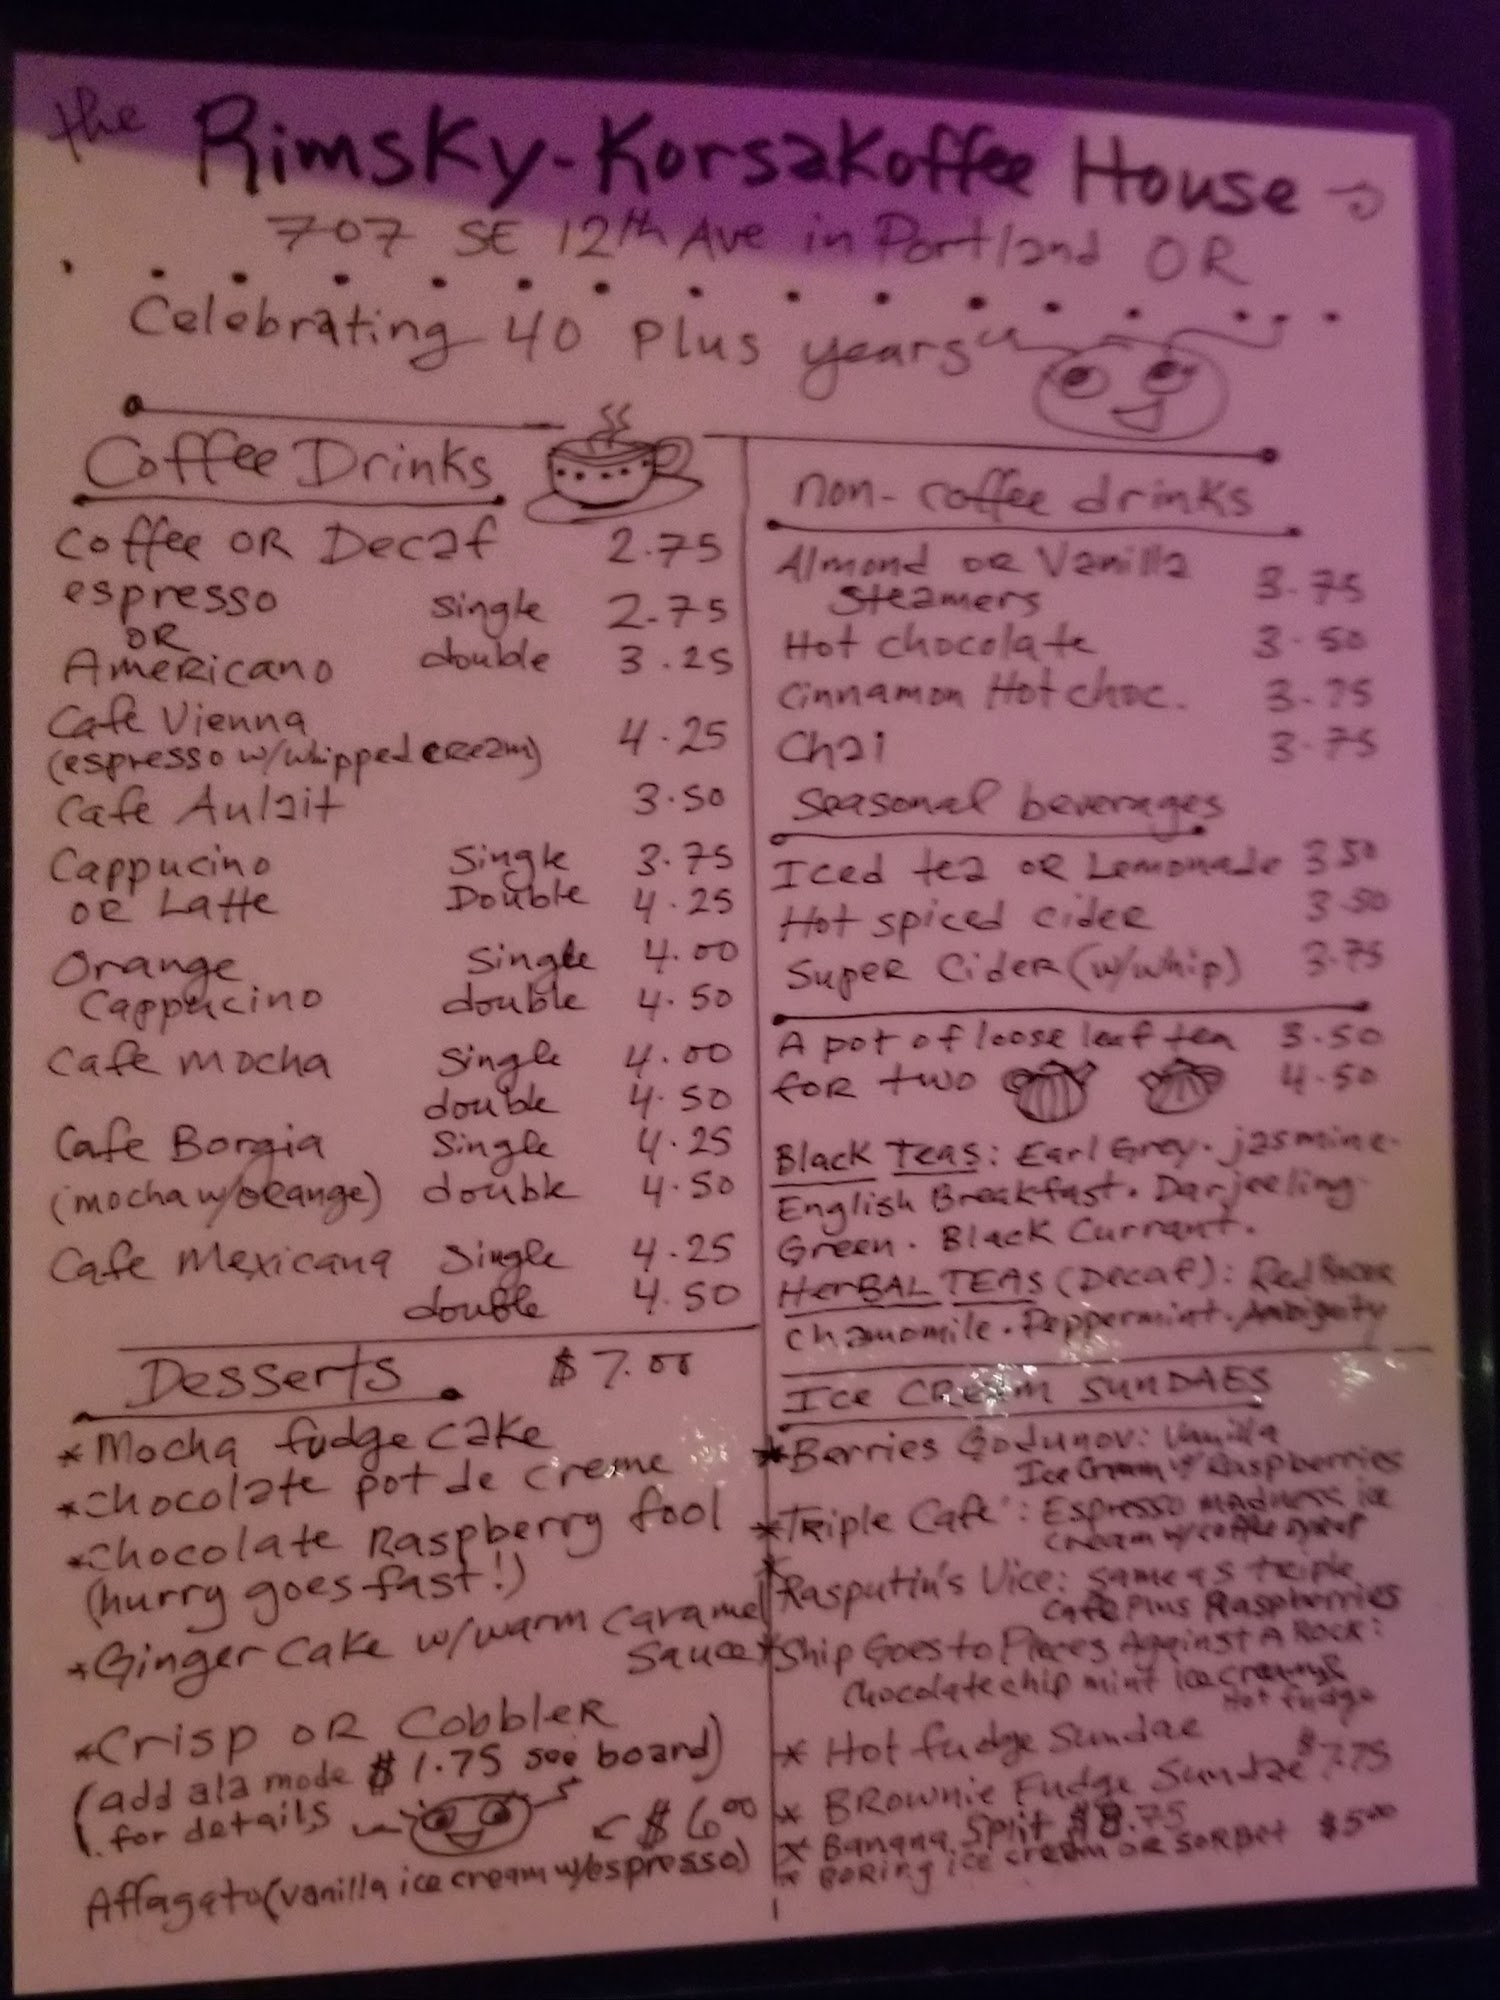 the Rimsky-Korsakoffee House
707 SE 12th Ave in Portland OR
Celebrating 40 Plus years
Coffee Drinks
Coffee OR Decaf 2.75
espresso single 2.75
OR
Americano double 3.25
Cafe Vienna
(espresso w/whipped cream) 4.25
Cafe Aulait 3.50
Cappucino Single 3.75
OR Latte Double 4.25
Orange Single 4.00
Cappucino double 4.50
Cafe Mocha Single 4.00
double 4.50
Cafe Borgia Single 4.25
(mocha w/orange) double 4.50
Cafe Mexicana Single 4.25
double 4.50
Desserts $7.00
*Mocha fudge cake
*Chocolate pot de creme
*Chocolate Raspberry fool
(hurry goes fast!)
*Ginger Cake w/warm caramel
Sauce
*Crisp OR Cobbler
(add ala mode $1.75 see board)
for details
$6.00
Affagato(vanilla ice cream w/espresso)
non-coffee drinks
Almond OR Vanilla
Steamers 3.75
Hot chocolate 3.50
Cinnamon Hot choc. 3.75
Chai 3.75
Seasonal beverages
Iced tea OR Lemonade 3.50
Hot spiced cider 3.50
Super Cider (w/whip) 3.75
A pot of loose leaf tea 3.50
for two 4.50
Black Teas: Earl Grey. jasmine.
English Breakfast. Darjeeling.
Green. Black Currant.
HerBAL TEAS (Decaf): Red
Chamomile. Peppermint. Ambiguity
Ice Cream SUNDAES
*Berries Godunov: Vanilla
Ice Cream w/ Raspberries
*Triple Cafe: Espresso madness ice
cream w/coffee syrup
*Rasputin's Vice: same as triple
Cafe Plus Raspberries
*Ship Goes to Pieces Against A Rock:
Chocolate chip mint ice cream &
Hot fudge
* Hot fudge Sundae
* Brownie Fudge Sundae $7.75
* Banana Split $8.75
* Boring ice cream or sorbet $5.00